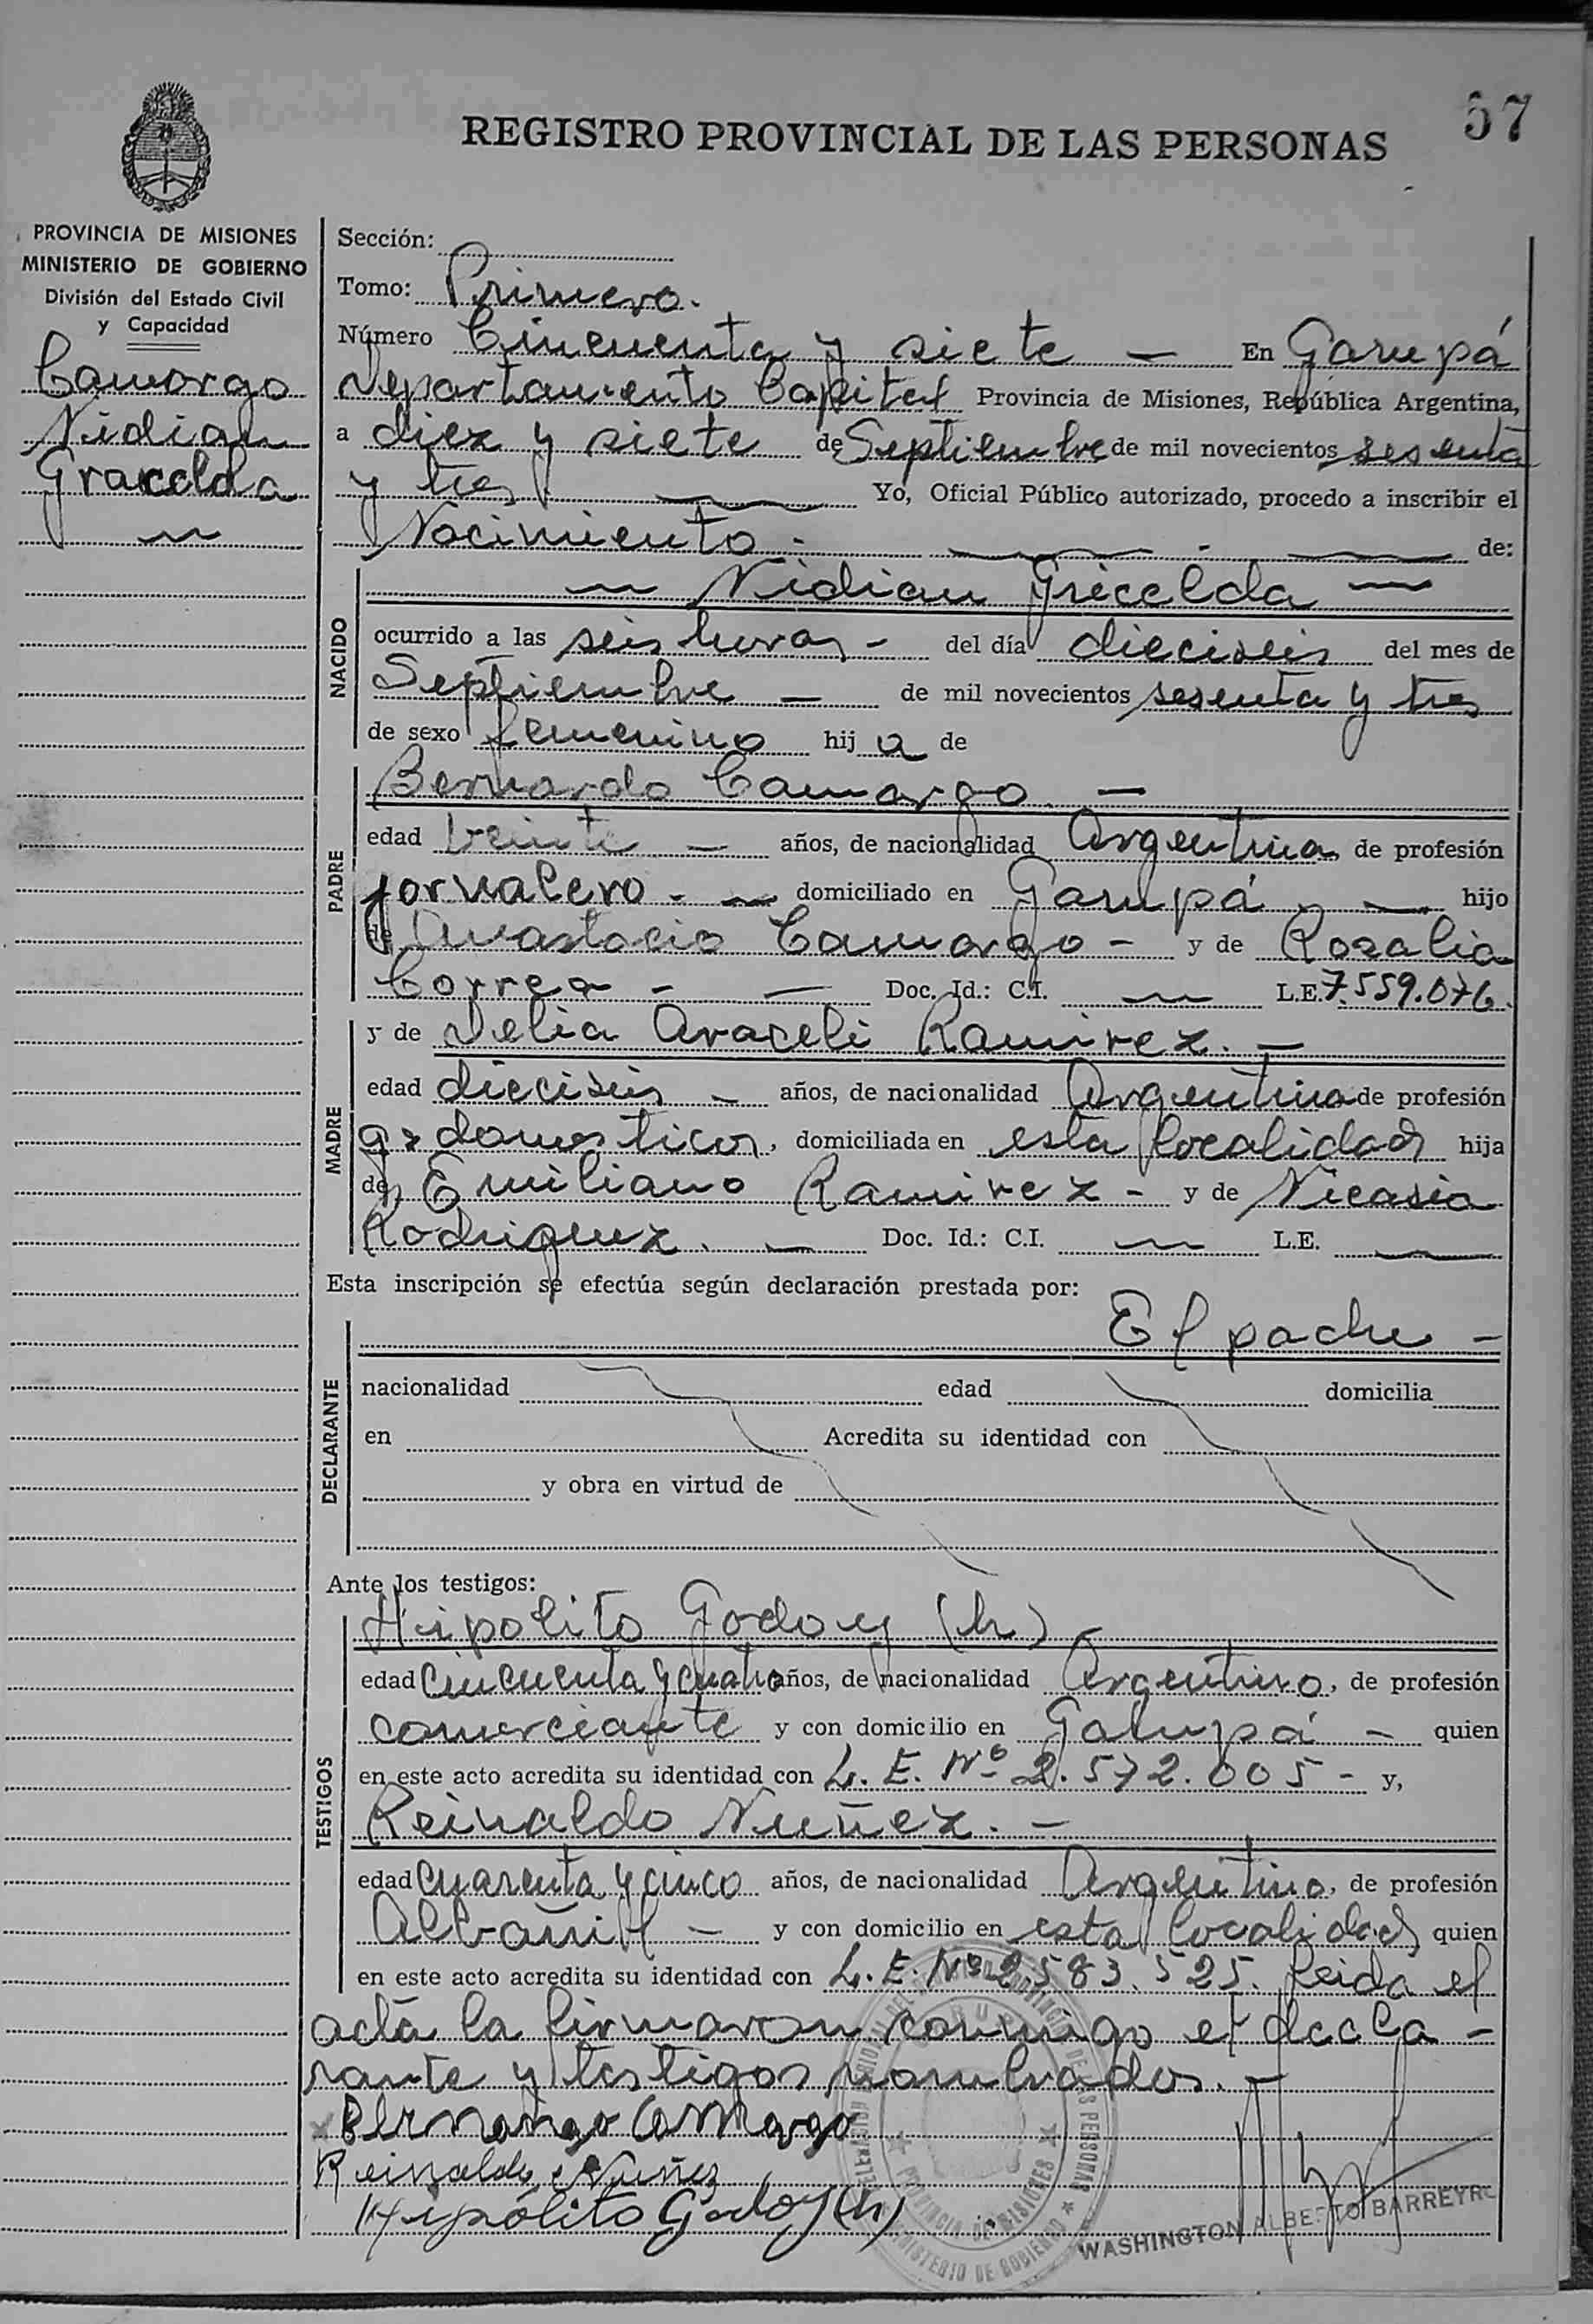 57
REGISTRO PROVINCIAL DE LAS PERSONAS
PROVINCIA DE MISIONES
MINISTERIO DE GOBIERNO
División del Estado Civil
y Capacidad
Camargo
Nidian
Gracelda
Sección:
Tomo: Primero.
Número Cincuenta y siete — En Garupá
Departamento Capital Provincia de Misiones, República Argentina,
a diez y siete de Septiembre de mil novecientos sesenta
y tres Yo, Oficial Público autorizado, procedo a inscribir el
Nacimiento - de:
NACIDO
Nidian Gricelda
ocurrido a las seis horas - del día dieciseis del mes de
Septiembre — de mil novecientos sesenta y tres
de sexo femenino hij a de
PADRE
Bernardo Camargo. —
edad veinte — años, de nacionalidad Argentina de profesión
jornalero. — domiciliado en Garupá — hijo
de Anastacio Camargo - y de Rosalia
Correa - — Doc. Id.: C.I. — L.E. 7.559.076.
MADRE
y de Delia Araceli Ramirez. —
edad dieciseis — años, de nacionalidad Argentina de profesión
q. domesticos, domiciliada en esta localidad hija
de Emiliano Ramirez - y de Nicasia
Rodriguez. — Doc. Id.: C.I. — L.E. —
Esta inscripción se efectúa según declaración prestada por:
DECLARANTE
El padre -
nacionalidad edad domicilia
en Acredita su identidad con
y obra en virtud de
Ante los testigos:
TESTIGOS
Hipolito Godoy (h) -
edad cincuenta y cuatro años, de nacionalidad Argentino, de profesión
comerciante y con domicilio en Garupá - quien
en este acto acredita su identidad con L. E. Nº 2.572.005 - y,
Reinaldo Nuñez. —
edad cuarenta y cinco años, de nacionalidad Argentino, de profesión
Albañil — y con domicilio en esta localidad quien
en este acto acredita su identidad con L. E. Nº 2.583.525. Leida el
acta la firmaron conmigo el decla -
rante y testigos nombrados. —
Bernardo Camargo
Reinaldo Nuñez
Hipólito Godoy (h)
WASHINGTON ALBERTO BARREYRO